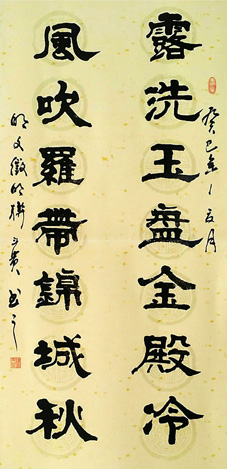 癸巳年五月
露洗玉盘金殿冷
風吹羅帶錦城秋
明文徵明聯